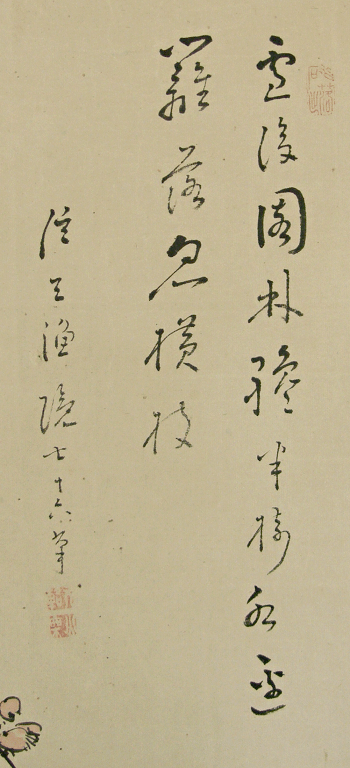 雪後園林纔半樹水邊
籬落忽橫枝
漁隠七十六筆